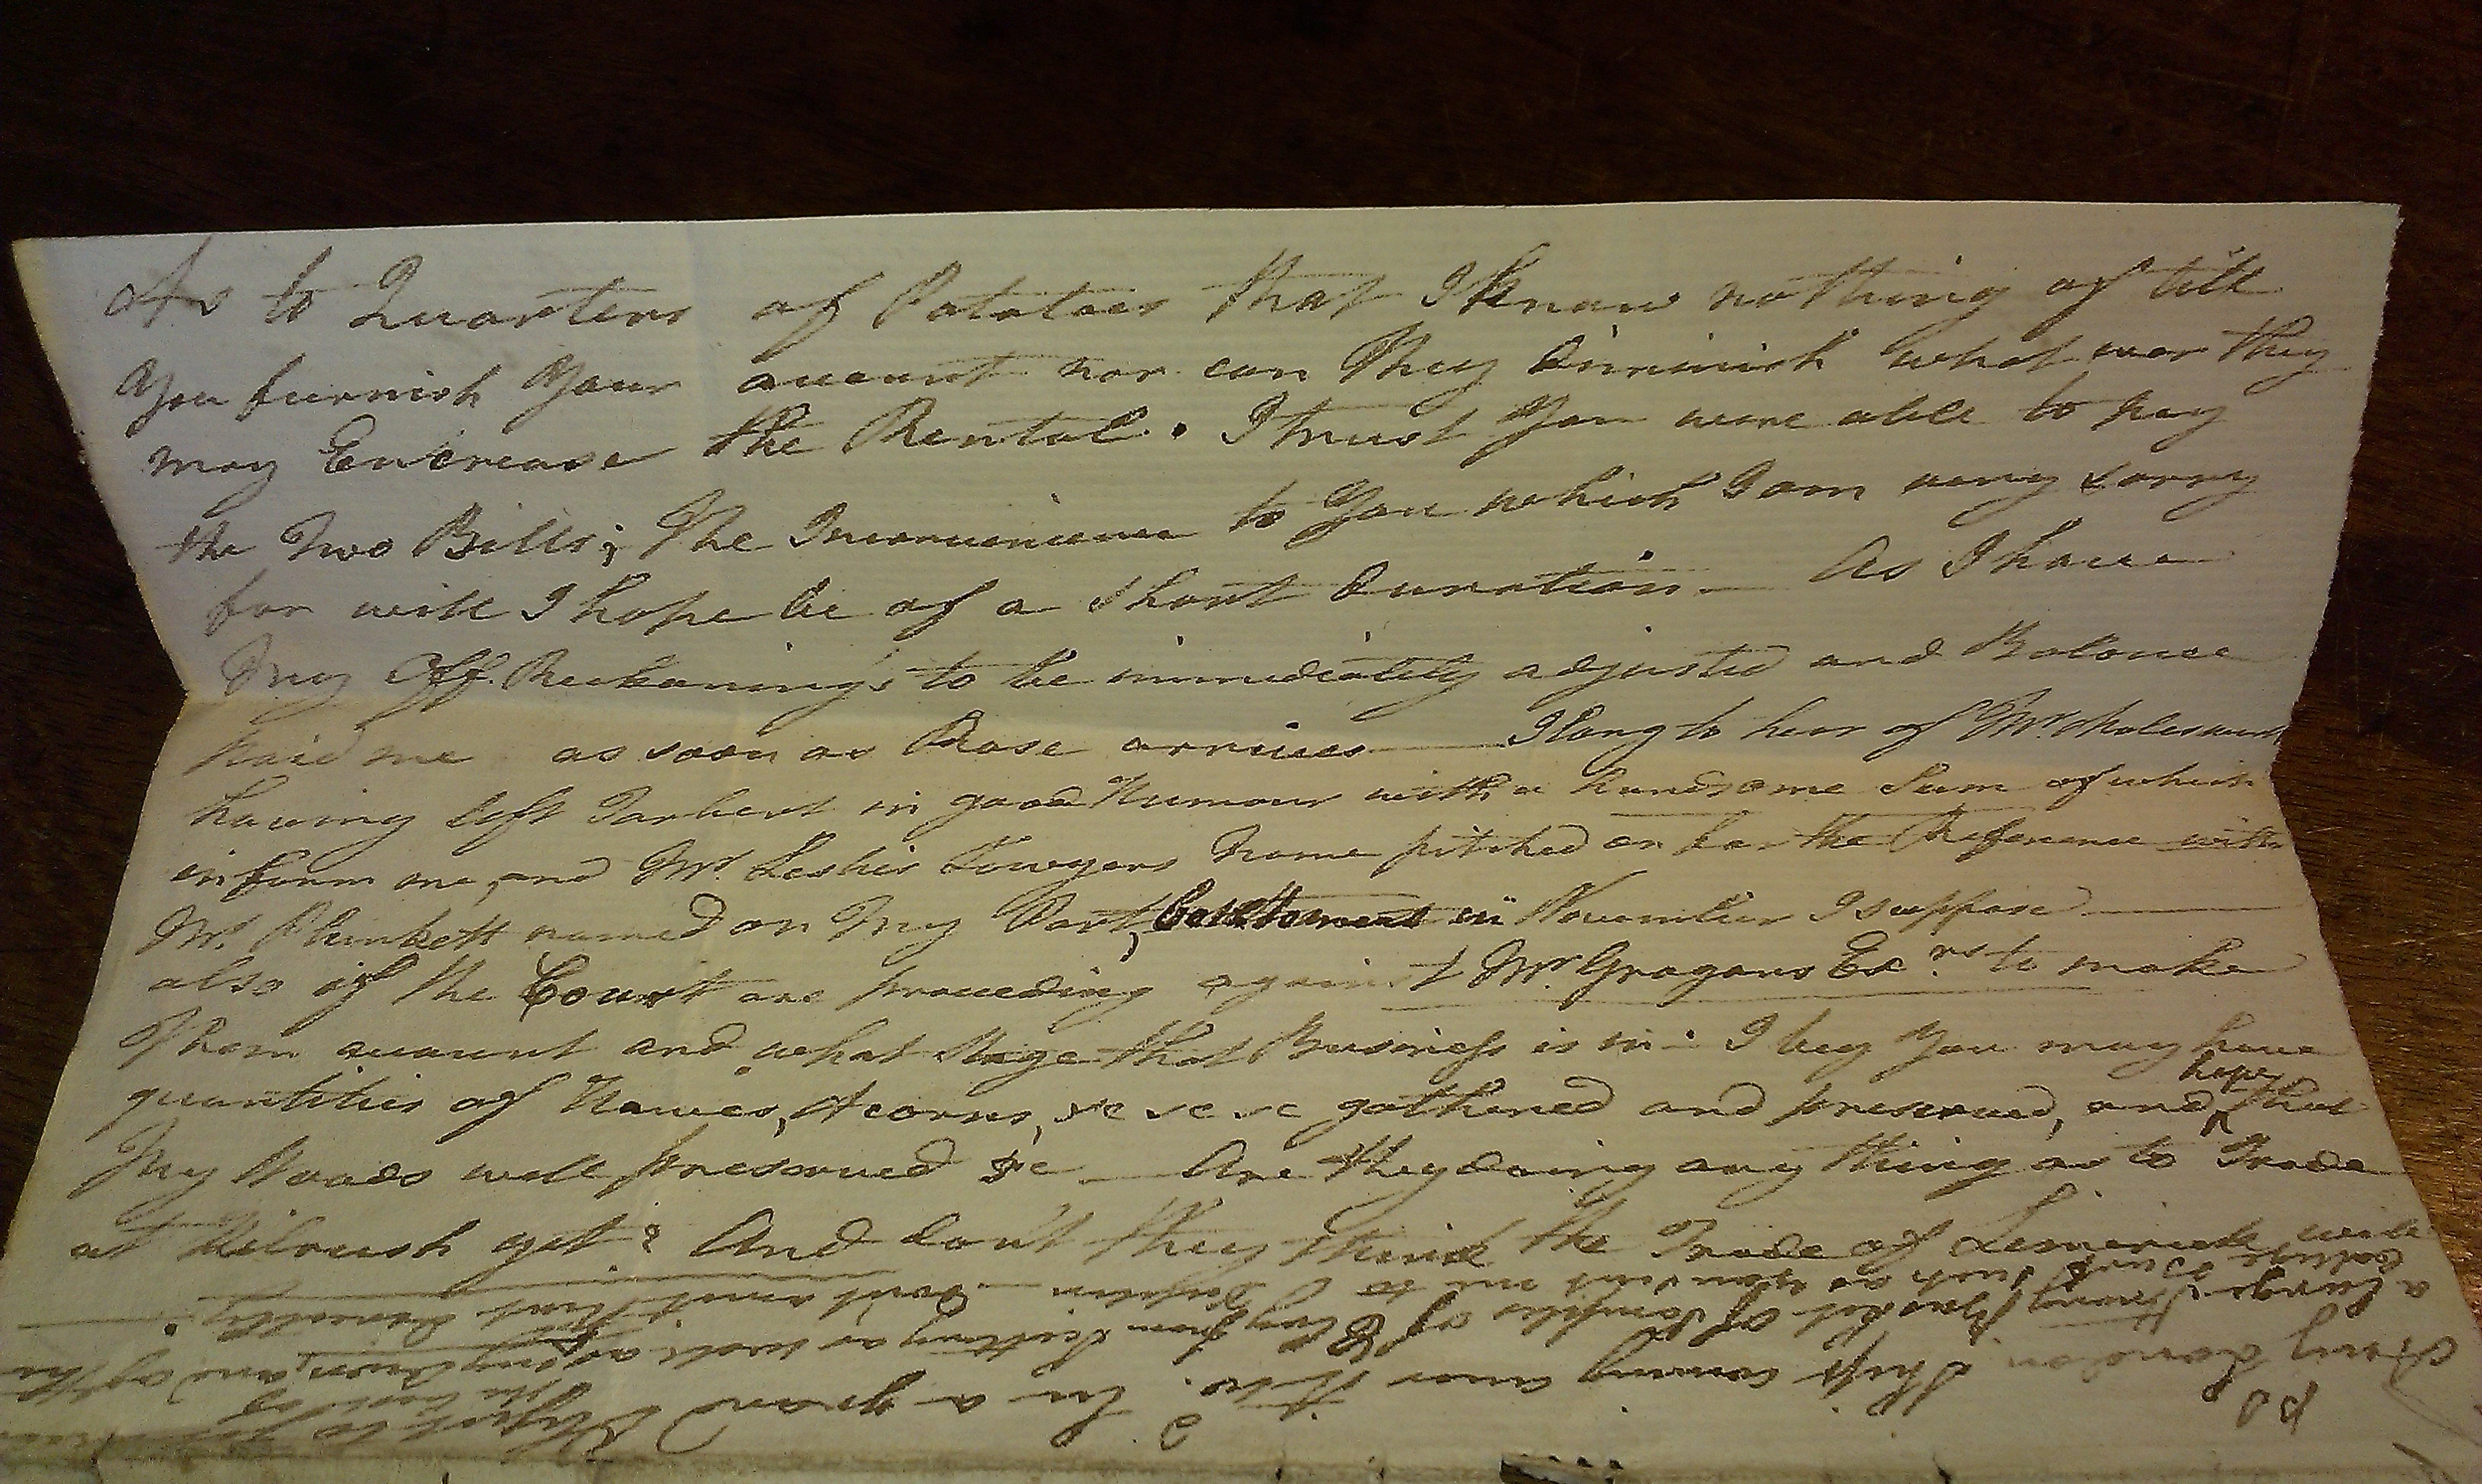 As to Quarters of Potatoes that I know nothing of till
you furnish your account nor can they Diminish what ever they
may Encrease the Rental. I trust you were able to pay
the Two Bills; The Inconvenience to you which I am very sorry
for will I hope be of a short Duration — As I have
my Off. Reckoning's to be immediately adjusted and Balance
paid me as soon as Rose arrives — I long to hear of Mr.
having left Tarbert in good Humour with a handsome Sum of which
inform me, and Mr. Leslies Lawyers Name pitched on for the Reference with
Mr. Plunkett named on my Part, in November I suppose —
also if the Court are proceeding against Mr. Grogans Exrs. to make
Them account and what stage that Business is in. I beg you may have
quantities of Hawes, Acorns, &c &c &c gathered and preserved, and hope that
my Woods well preserved &c — Are they doing any thing as to Trade
at Kilrush yet? And don't they think the Trade of Limerick will
PS
Any London Ship coming over
a large strong of Samples of
such as you sent me to — Don't omit that